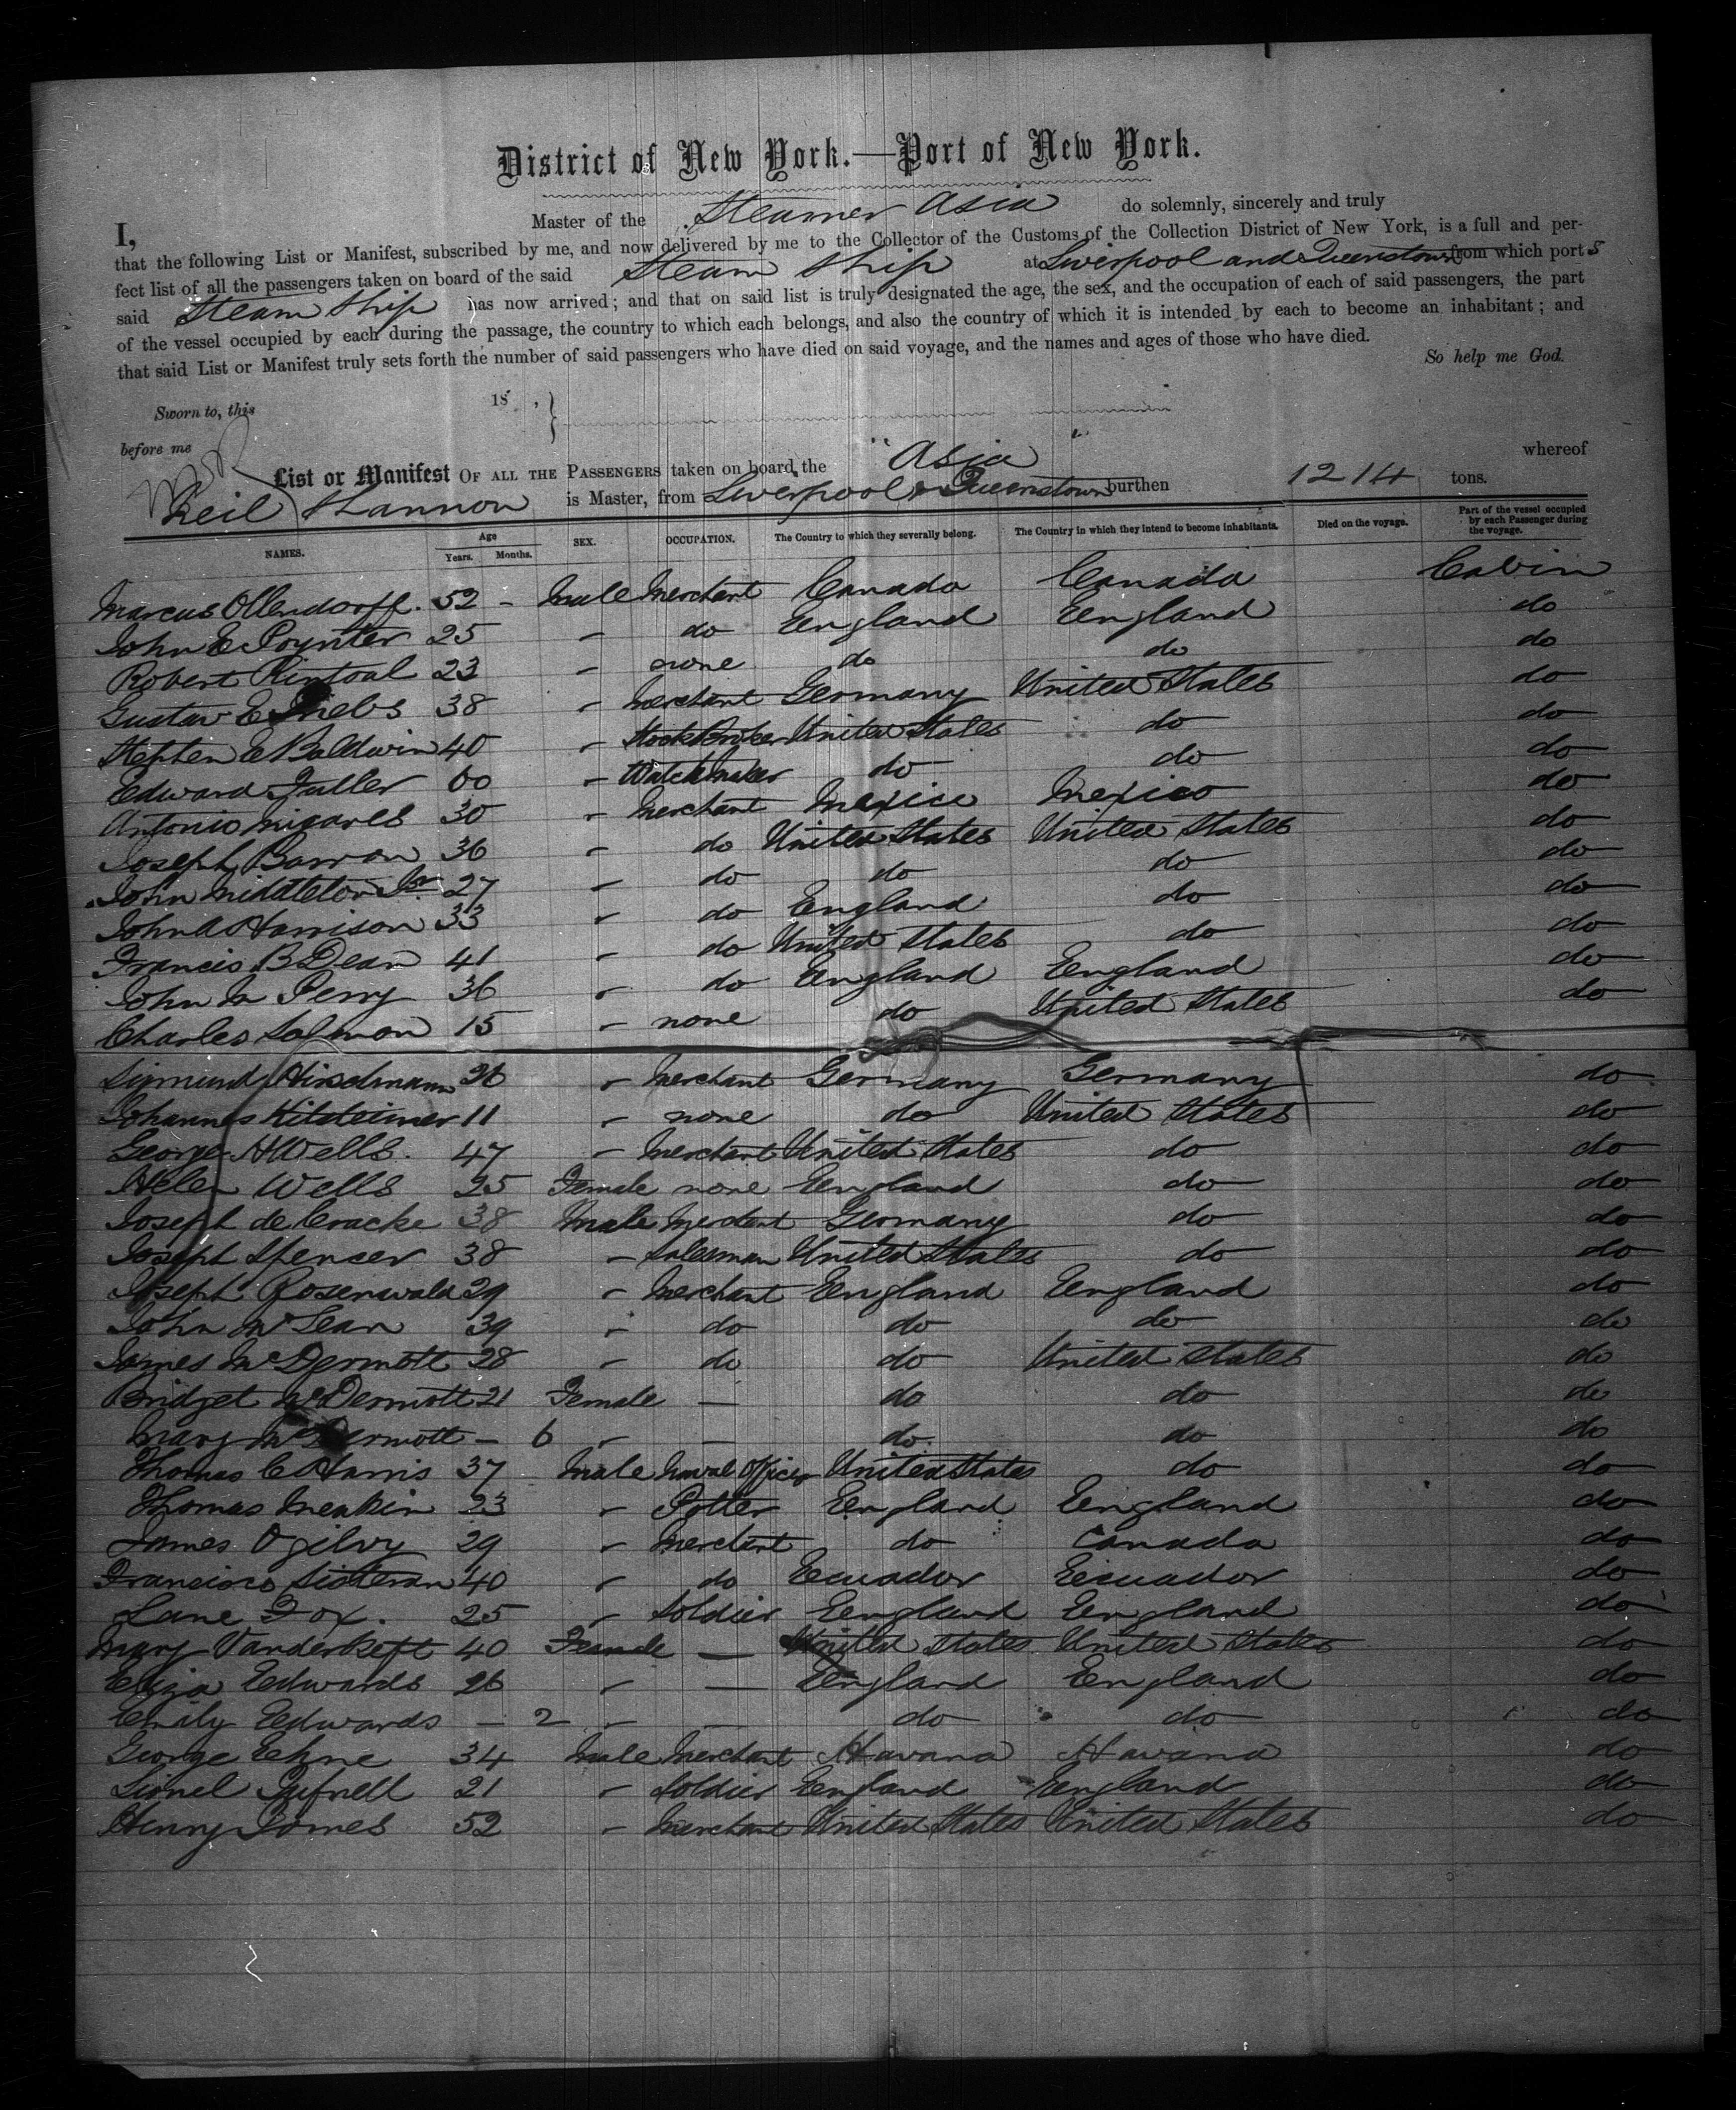 District of New York.—Port of New York.
I, Master of the Steamer Asia do solemnly, sincerely and truly
that the following List or Manifest, subscribed by me, and now delivered by me to the Collector of the Customs of the Collection District of New York, is a full and per-
fect list of all the passengers taken on board of the said Steam Ship at Liverpool and Queenstown from which ports
said Steam Ship has now arrived; and that on said list is truly designated the age, the sex, and the occupation of each of said passengers, the part
of the vessel occupied by each during the passage, the country to which each belongs, and also the country of which it is intended by each to become an inhabitant; and
that said List or Manifest truly sets forth the number of said passengers who have died on said voyage, and the names and ages of those who have died.
So help me God.
Sworn to, this 18 ,
before me
List or Manifest OF ALL THE PASSENGERS taken on board the "Asia" whereof
Neil Shannon is Master, from Liverpool & Queenstown burthen 1214 tons.
NAMES. Age Years. Months. SEX. OCCUPATION. The Country to which they severally belong. The Country in which they intend to become inhabitants. Died on the voyage. Part of the vessel occupied by each Passenger during the voyage.
Marcus Ollendorff. 52 - Male Merchant Canada Canada Cabin
John E Poynter 25 " do England England do
Robert Rintoal 23 " none do do do
Gustav E 38 " Merchant Germany United States do
Stephen E Baldwin 40 " Stock Broker United States do do
Edward Fuller 60 " Watchmaker do do do
Antonio Micares 30 " Merchant Mexico Mexico do
Joseph Barron 36 " do United States United States do
John Middleton Jr 27 " do do do do
John A Harrison 33 " do England do do
Francis B Dean 41 " do United States do do
John M Perry 36 " do England England do
Charles Salmon 15 " none do United States do
Sigmund 26 " Merchant Germany Germany do
Johannes 11 " none do United States do
George H Wells. 47 " Merchant United States do do
Helen Wells 25 Female none England do do
Joseph de Cracke 38 Male Merchant Germany do do
Joseph Spencer 38 " Salesman United States do do
Joseph Rosenwald 29 " Merchant England England do
John McLean 39 " do do do do
James McDermott 28 " do do United States do
Bridget McDermott 21 Female — do do do
Mary McDermott - 6 " — do do do
Thomas C Harris 37 Male Naval Officer United States do do
Thomas Meakin 23 " Potter England England do
James Ogilvy 29 " Merchant do Canada do
Francisco 40 " do Ecuador Ecuador do
Lane Fox. 25 " Soldier England England do
Mary Vanderkeft 40 Female — United States United States do
Eliza Edwards 26 " — England England do
Emily Edwards - 2 " — do do do
George Ehne 34 Male Merchant Havana Havana do
Lionel Tufnell 21 " Soldier England England do
Henry Jones 52 " Merchant United States United States do